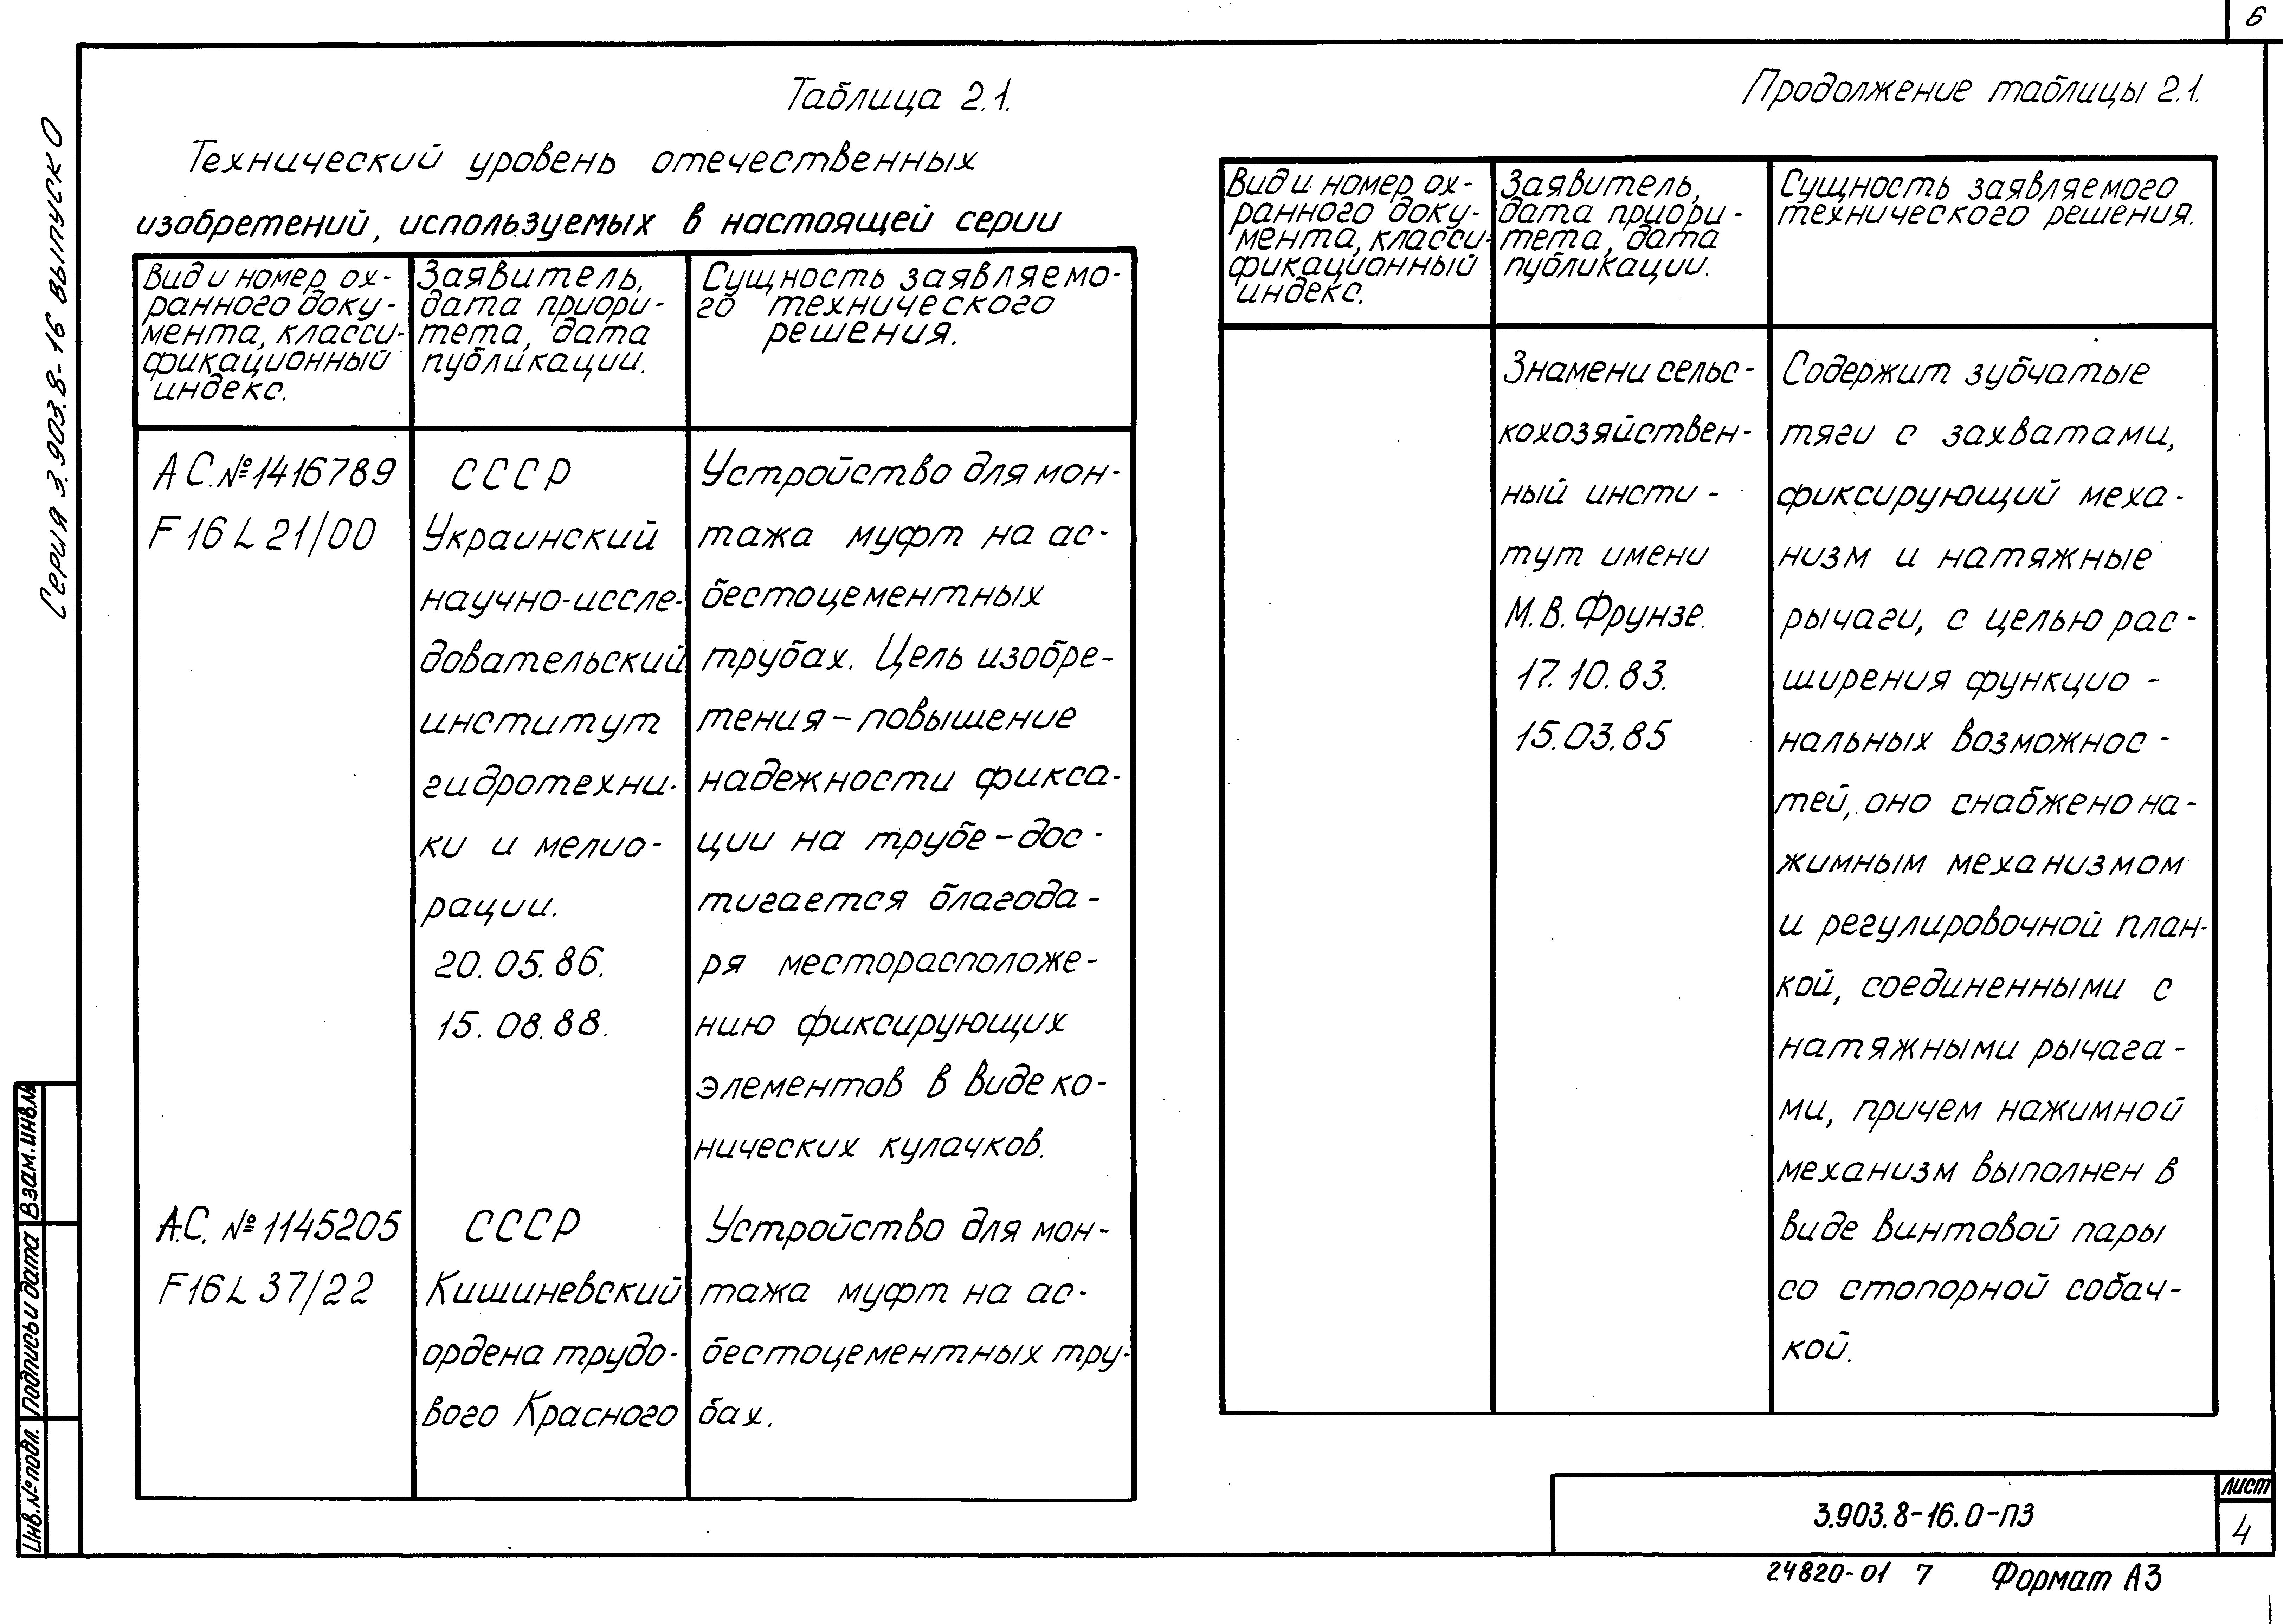 6
Серия 3.903.8-16 выпуск 0
Таблица 2.1.
Технический уровень отечественных
изобретений, используемых в настоящей серии
Вид и номер ох-
ранного доку-
мента, класси-
фикационный
индекс.
Заявитель,
дата приори-
тета, дата
публикации.
Сущность заявляемо-
го технического
решения.
А.С. №1416789
F 16 L 21/00
СССР
Украинский
научно-иссле-
довательский
институт
гидротехни-
ки и мелио-
рации.
20.05.86.
15.08.88.
Устройство для мон-
тажа муфт на ас-
бестоцементных
трубах. Цель изобре-
тения – повышение
надежности фикса-
ции на трубе – дос-
тигается благода-
ря месторасположе-
нию фиксирующих
элементов в виде ко-
нических кулачков.
А.С. №1145205
F 16 L 37/22
СССР
Кишиневский
ордена трудо-
вого Красного
Устройство для мон-
тажа муфт на ас-
бестоцементных тру-
бах.
Продолжение таблицы 2.1.
Вид и номер ох-
ранного доку-
мента, класси-
фикационный
индекс.
Заявитель,
дата приори-
тета, дата
публикации.
Сущность заявляемого
технического решения.
Знамени сельс-
кохозяйствен-
ный инсти-
тут имени
М.В. Фрунзе.
17.10.83.
15.03.85
Содержит зубчатые
тяги с захватами,
фиксирующий меха-
низм и натяжные
рычаги, с целью рас-
ширения функцио-
нальных возможнос-
тей, оно снабжено на-
жимным механизмом
и регулировочной план-
кой, соединенными с
натяжными рычага-
ми, причем нажимной
механизм выполнен в
виде винтовой пары
со стопорной собач-
кой.
Взам. инв.№
Подпись и дата
Инв. № подл.
3.903.8-16.0-ПЗ
лист
4
24820-01 7 Формат А3